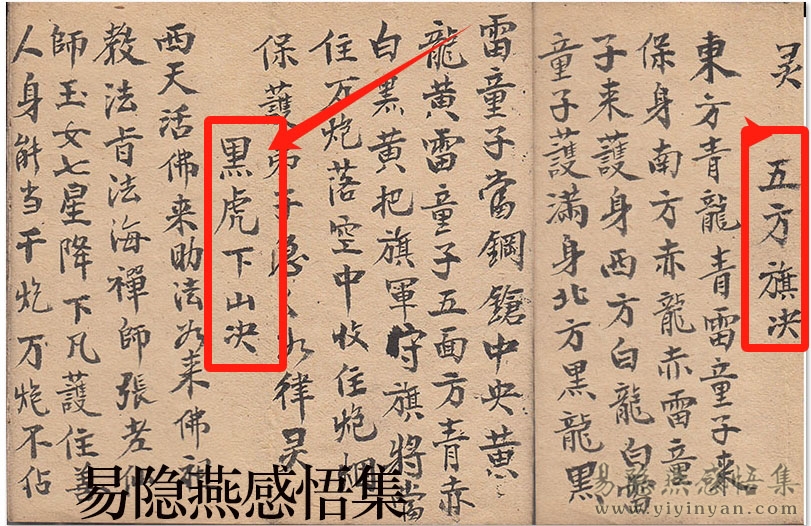 灵
五方旗决
東方青龍青雷童子来
保身南方赤龍赤雷童
子来護身西方白龍白雷
童子護满身北方黑龍黑
雷童子當鋼鎗中央黄
龍黄雷童子五面方青赤
白黑黄把旗軍守旗將當
住万炮落空中收住炮烟
保護弟子急 律灵
黑虎下山决
西天活佛来助法如来佛祖
教法旨法海禪師張老仙
師玉女七星降下凡護住善
人身能当千炮万炮不佔
易隐燕感悟集
易隐燕感悟集
www.yiyinyan.com